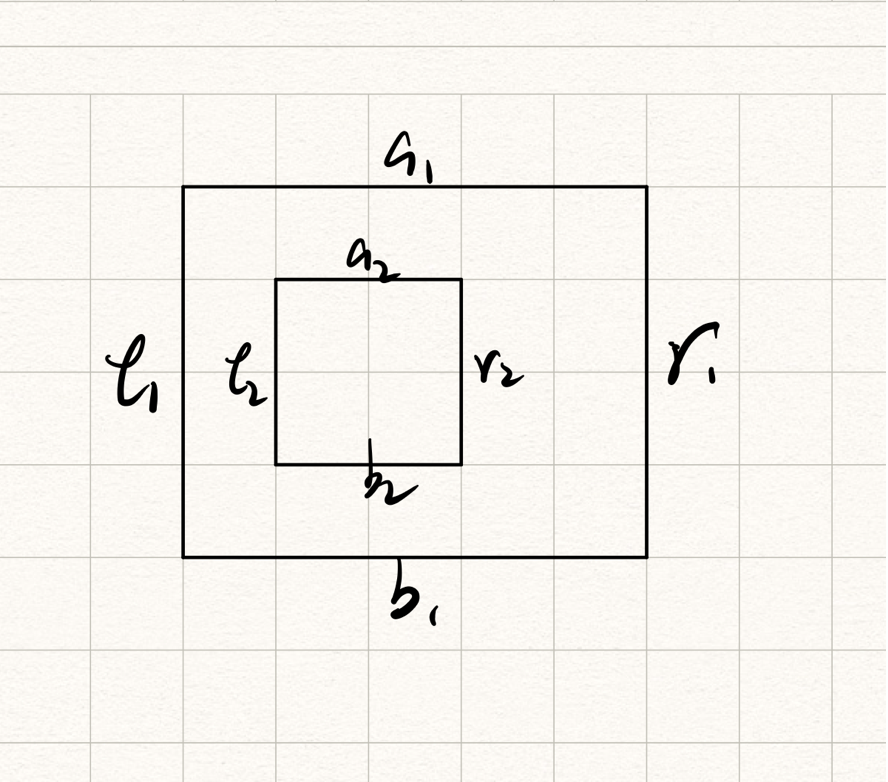 a₁
a₂
l₁ l₂ r₂ r₁
b₂
b₁